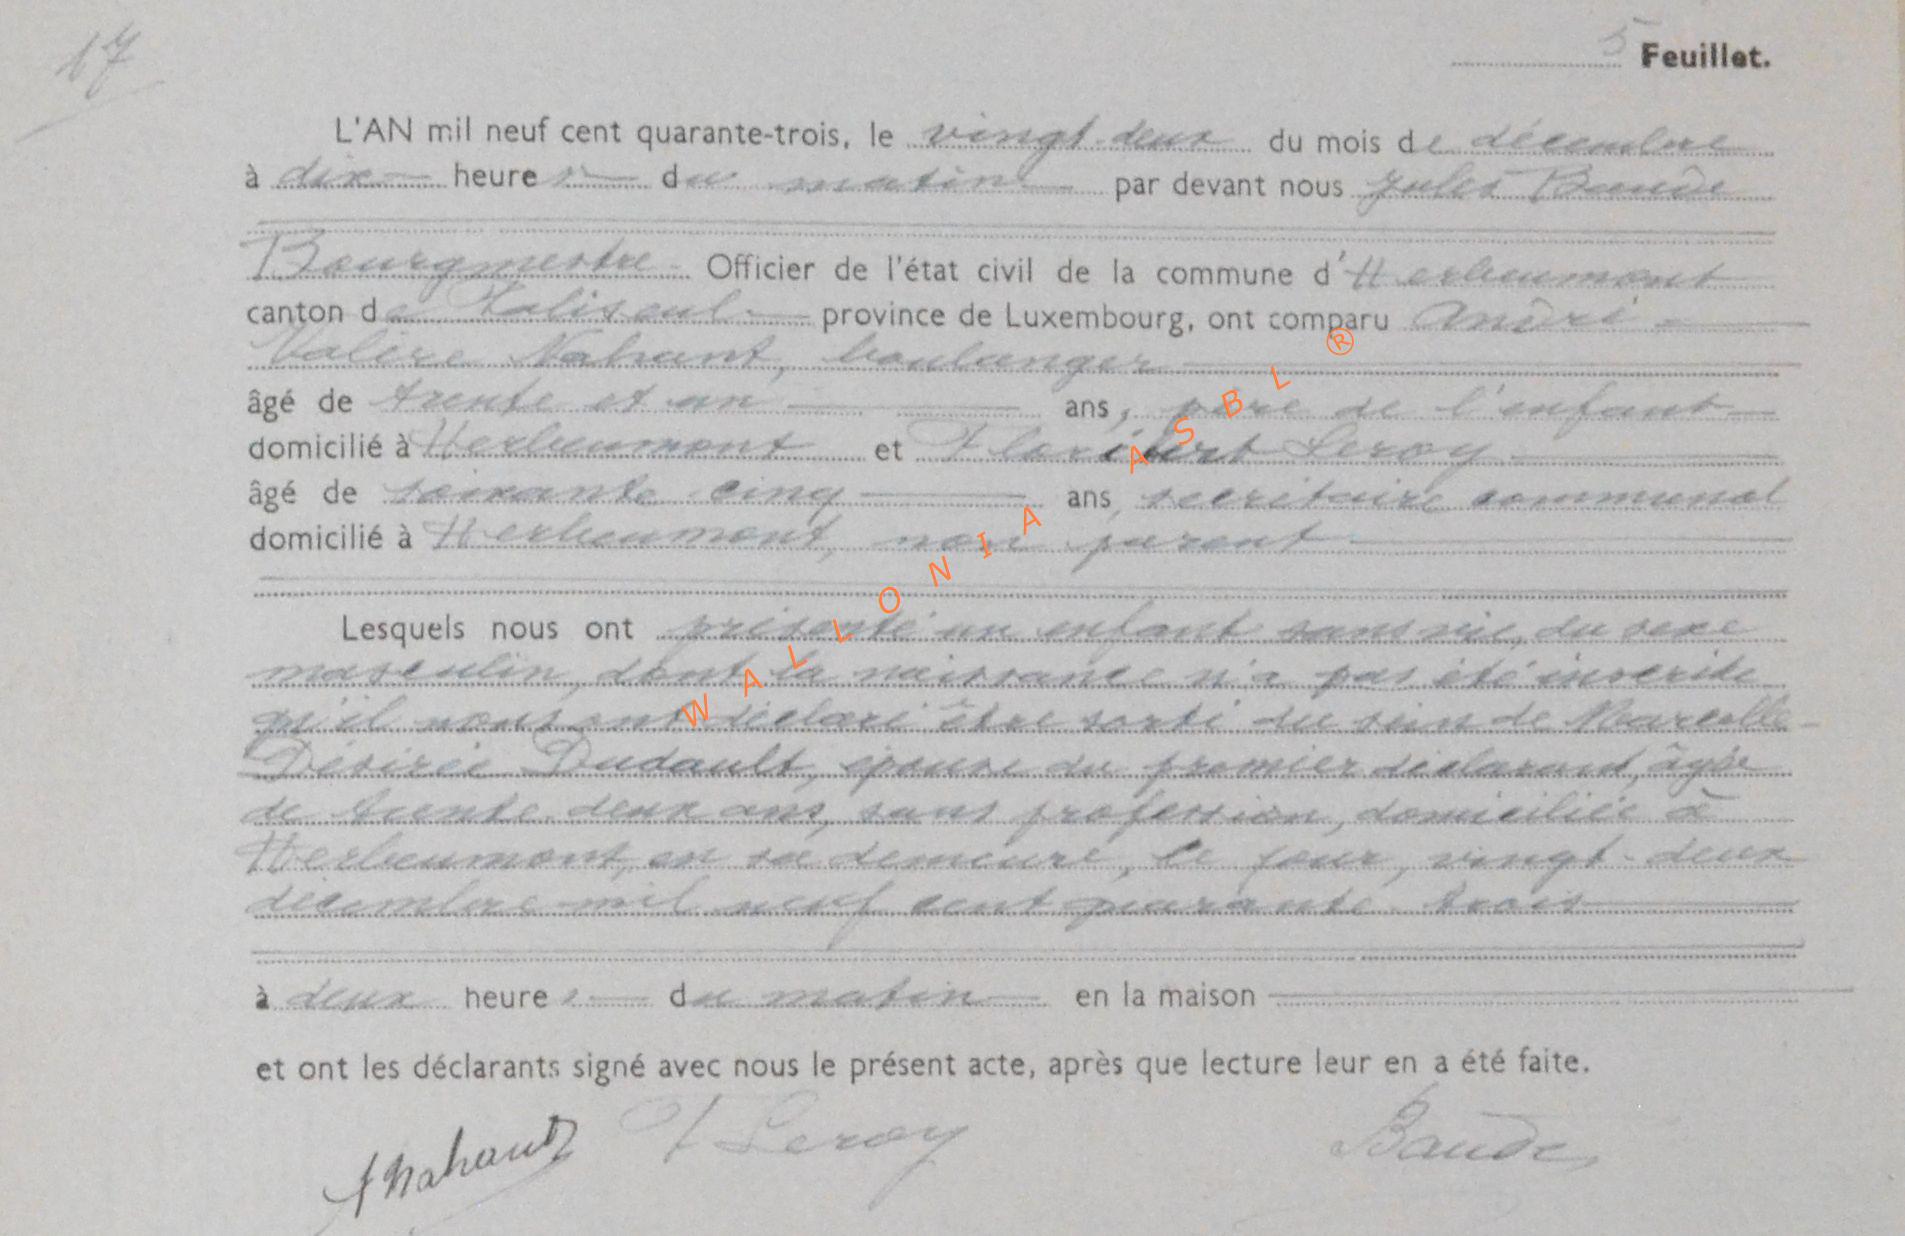 17
5 Feuillet.
L'AN mil neuf cent quarante-trois, le vingt-deux du mois de décembre
à dix heures du matin par devant nous Jules Baude
Bourgmestre Officier de l'état civil de la commune d'Herbeumont
canton de Paliseul province de Luxembourg, ont comparu André
Valère Nahant, boulanger
âgé de trente et un ans, père de l'enfant
domicilié à Herbeumont et Floribert Leroy
âgé de soixante cinq ans, secrétaire communal
domicilié à Herbeumont, non parent
Lesquels nous ont présenté un enfant sans vie, du sexe
masculin, dont la naissance n'a pas été inscrite
qu'il nous ont déclaré être sorti du sein de Marcelle
Désirée Dudault, épouse du premier déclarant, âgée
de trente-deux ans, sans profession, domiciliée à
Herbeumont, en sa demeure, ce jour, vingt-deux
décembre mil neuf cent quarante-trois
à deux heures du matin en la maison
et ont les déclarants signé avec nous le présent acte, après que lecture leur en a été faite.
ANahant F Leroy Baude
WALLONIA ASBL ®